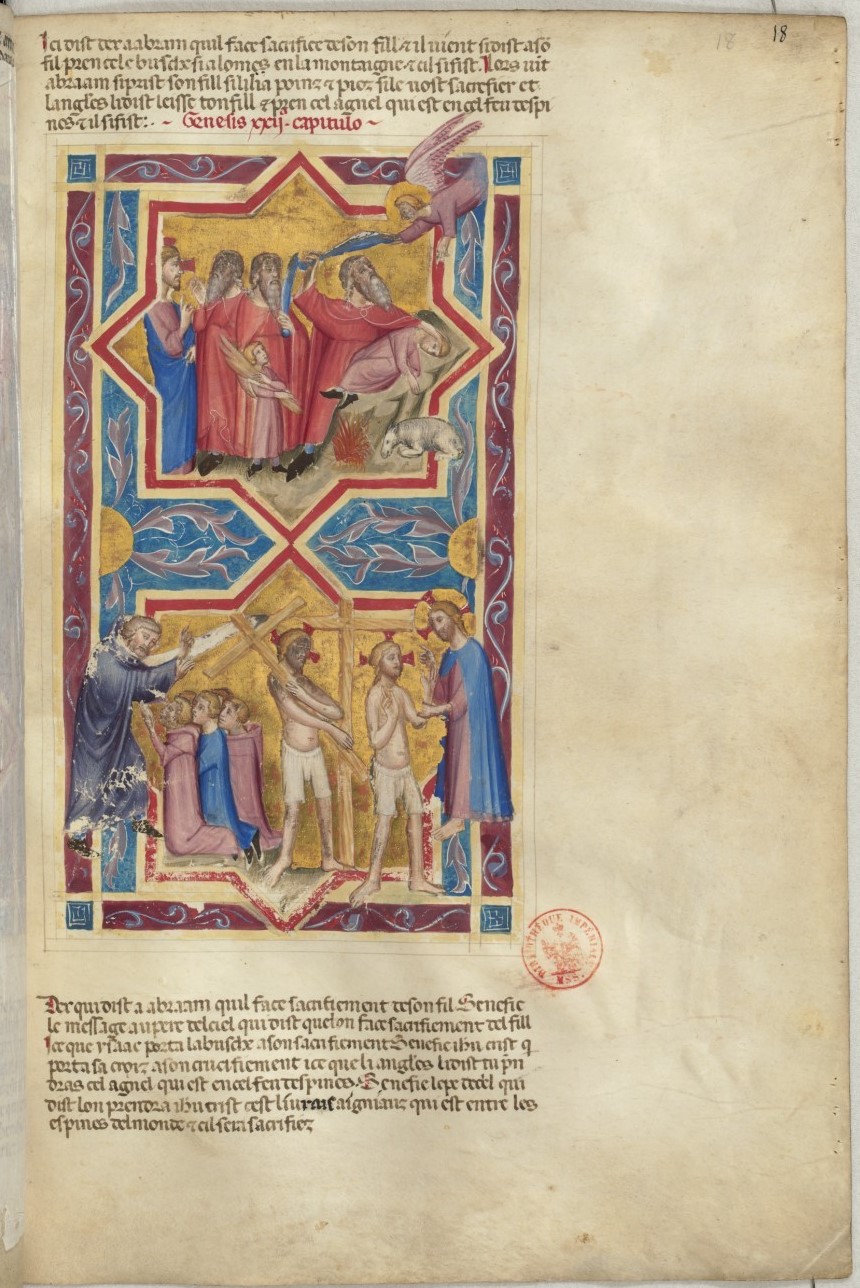 18
18
Ici dist dex a abram quil face sacrifice de son fill & il uient si dist a so
fil pren cele busche si alomes en la montaigne & cil si fist. Lors uit
abraam si prist son fill si li lia poinz & piez si le uost sacrefier et
langles li dist leisse ton fill & pren cel agnel qui est en cel feu despi
nes & il si fist:· ~ Genesis xxij· capitulo ~
BIBLIOTHÈQUE IMPÉRIALE
MSS.
Dex qui dist a abraam quil face sacrifiement de son fil. Senefie
le message au pere del ciel qui dist que lon face sacrifiement del fill
Ice que ysaac porta la busche a son sacrifiement Senefie ihu crist q
porta sa croiz a son crucifiement ice que li angles li dist tu pn
dras cel agnel qui est en cel feu despines. Senefie le pe decel qui
dist lon prendra ihu crist cest li urais aigniaux qui est entre les
espines del monde & cil sera sacrifiez